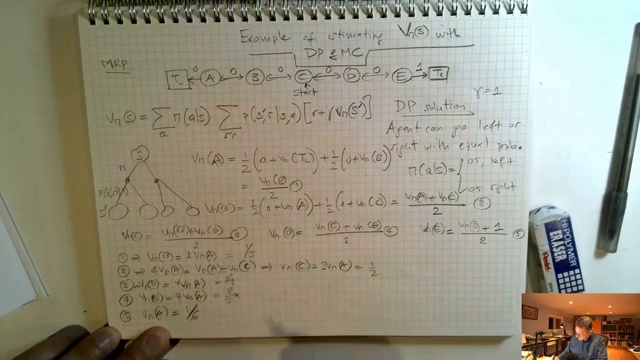 Example of estimating Vπ(s) with
DP & MC
MRP
TL 0 A 0 B 0 C 0 D 0 E 1 TR
Start
Vπ(s) = Σa π(a|s) Σs'r p(s',r|s,a) [r + γVπ(s')]
DP solution γ=1
Agent can go left or
right with equal prob.
π(a|s) = { 0.5, left
0.5 right
S
π
Vπ(A) = 1/2 (0 + Vπ(TL)) + 1/2 (0 + Vπ(B))
= Vπ(B)/2 ①
Vπ(B) = 1/2 (0 + Vπ(A)) + 1/2 (0 + Vπ(C)) = Vπ(A) + Vπ(C) / 2 ②
Vπ(C) = Vπ(B) + Vπ(D) / 2 ③ Vπ(D) = Vπ(C) + Vπ(E) / 2 ④ Vπ(E) = Vπ(D) + 1 / 2 ⑤
① ⇒ Vπ(B) = 2Vπ(A) = 1/3
② ⇒ 4Vπ(A) = Vπ(A) + Vπ(C) ⇒ Vπ(C) = 3Vπ(A) = 1/2
Vπ(D) = 4Vπ(A) = 2/3
④
⑤ Vπ(A) = 1/6
HI-POLYMER
ERASER
Pentel